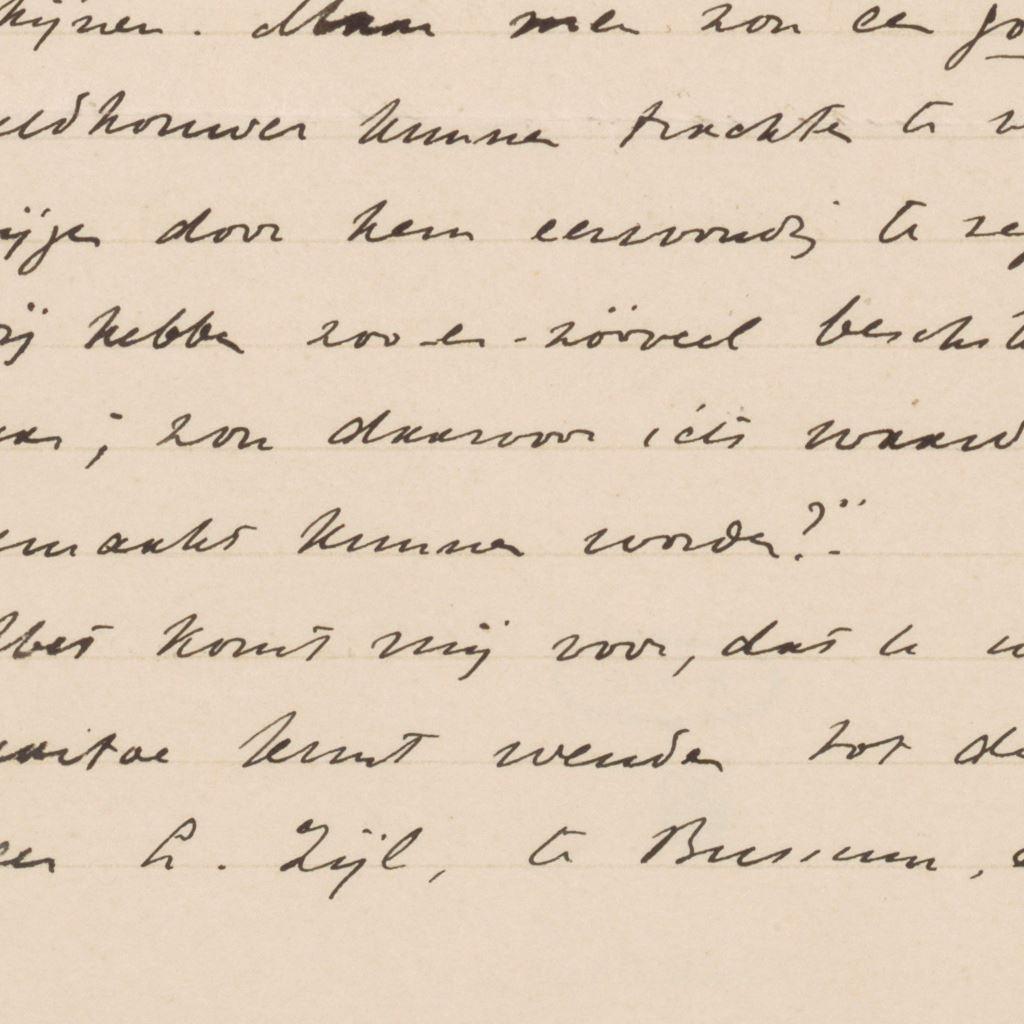 kijnen. Maar men zou een go
eldhouwer kunnen trachten te v
ijgen door hem eenvoudig te zeg
ij hebben zoo-en-zóóveel beschik
aar; zou daarvoor iets waard
emaakt kunnen worden?".
lbest komt mij voor, dat U u
aartoe kunt wenden tot de
eer L. Zijl, te Bussum,